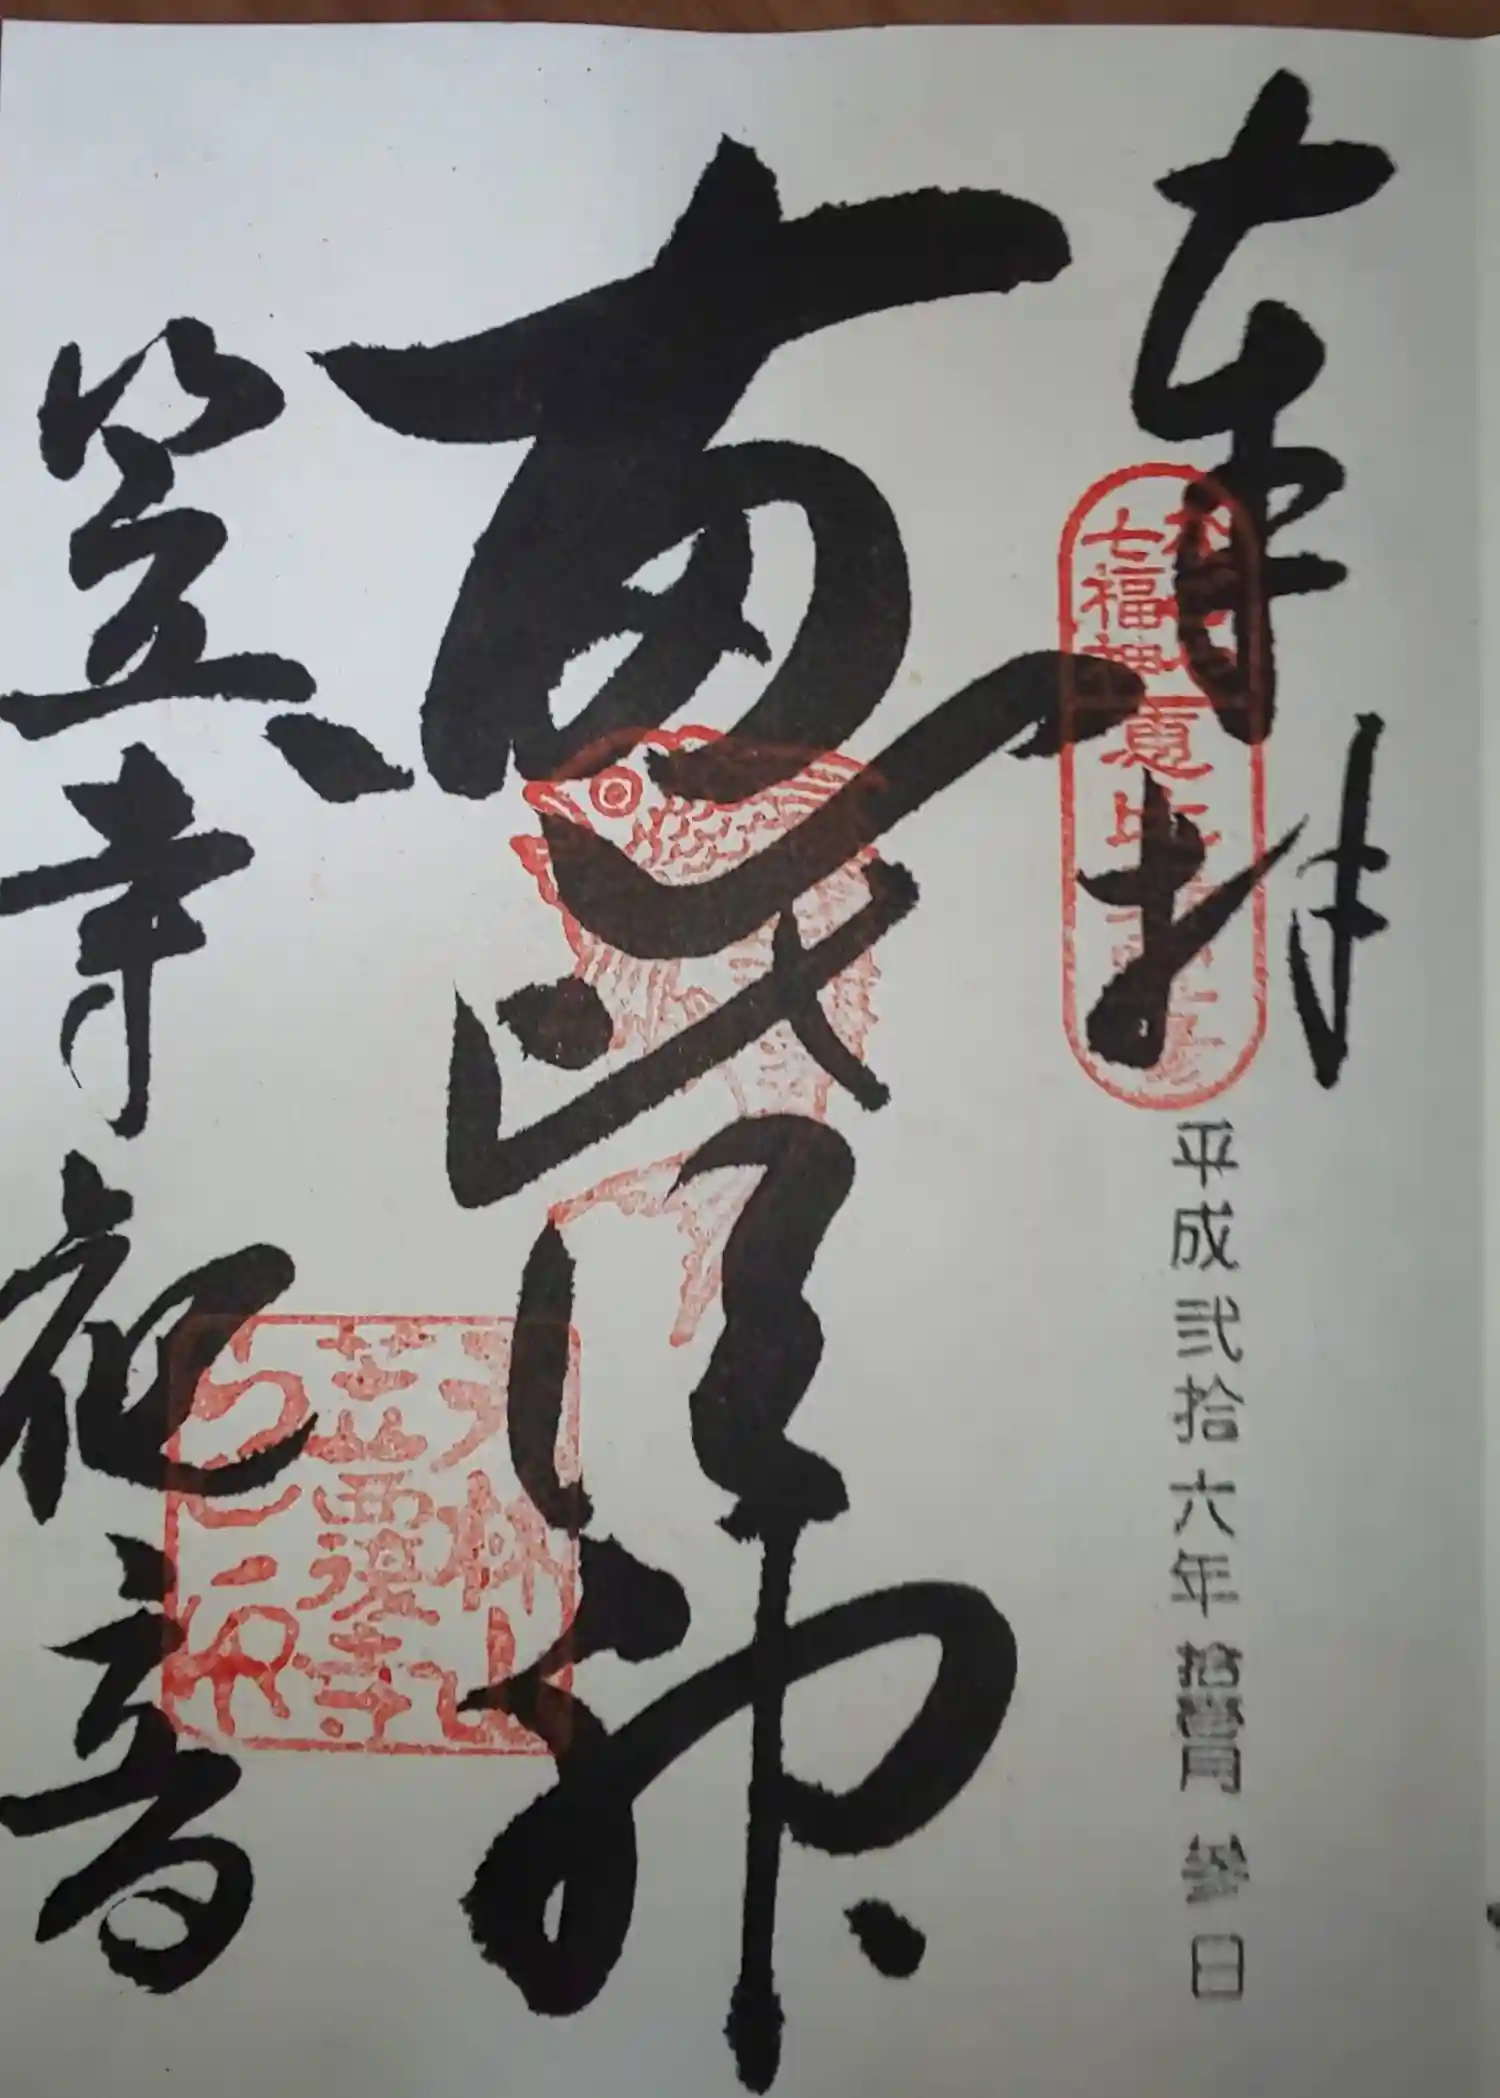 奉拝
七福神
恵比寿
平成弐拾六年拾壹月参日
恵比寿神
天林山
笠覆寺
笠寺観音